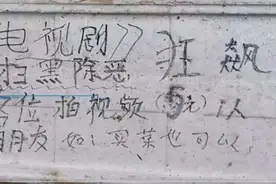 电视剧》 狂飙
扫黑除恶
位拍视频(5元)1人
朋友 如:买菜也可以